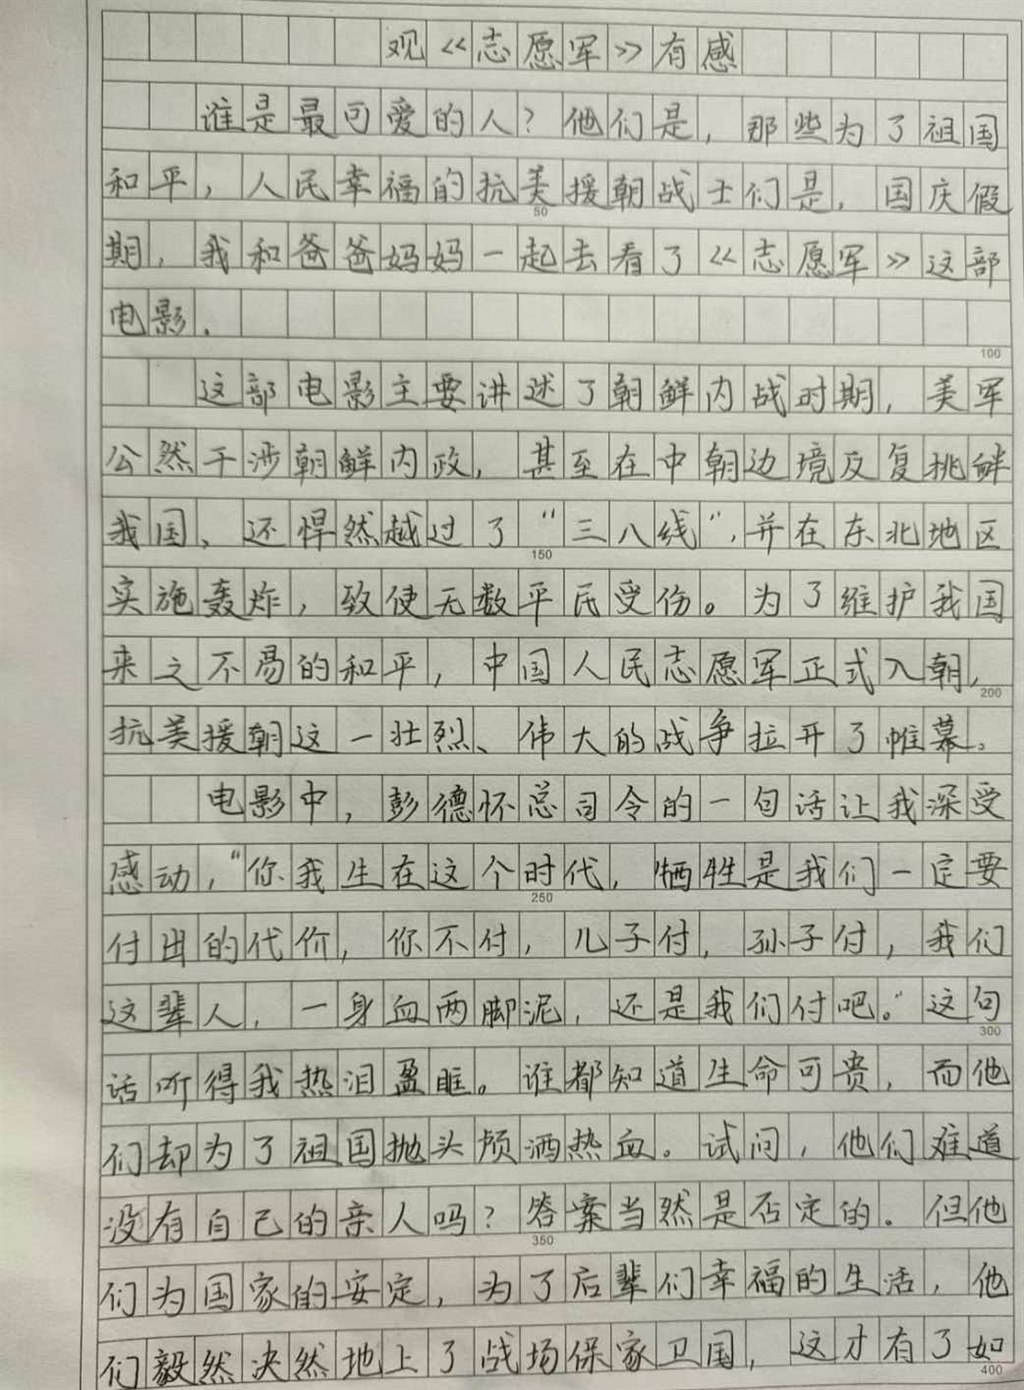 观《志愿军》有感
谁是最可爱的人？他们是，那些为了祖国
和平，人民幸福的抗美援朝战士们是，国庆假
期，我和爸爸妈妈一起去看了《志愿军》这部
电影.
100
这部电影主要讲述了朝鲜内战时期，美军
公然干涉朝鲜内政，甚至在中朝边境反复挑衅
我国、还悍然越过了“三八线”，并在东北地区
150
实施轰炸，致使无数平民受伤。为了维护我国
来之不易的和平，中国人民志愿军正式入朝，
200
抗美援朝这一壮烈、伟大的战争拉开了帷幕。
电影中，彭德怀总司令的一句话让我深受
感动，“你我生在这个时代，牺牲是我们一定要
250
付出的代价，你不付，儿子付，孙子付，我们
这辈人，一身血两脚泥，还是我们付吧。”这句
300
话听得我热泪盈眶。谁都知道生命可贵，而他
们却为了祖国抛头颅洒热血。试问，他们难道
没有自己的亲人吗？答案当然是否定的。但他
350
们为国家的安定，为了后辈们幸福的生活，他
们毅然决然地上了战场保家卫国，这才有了如
400
50